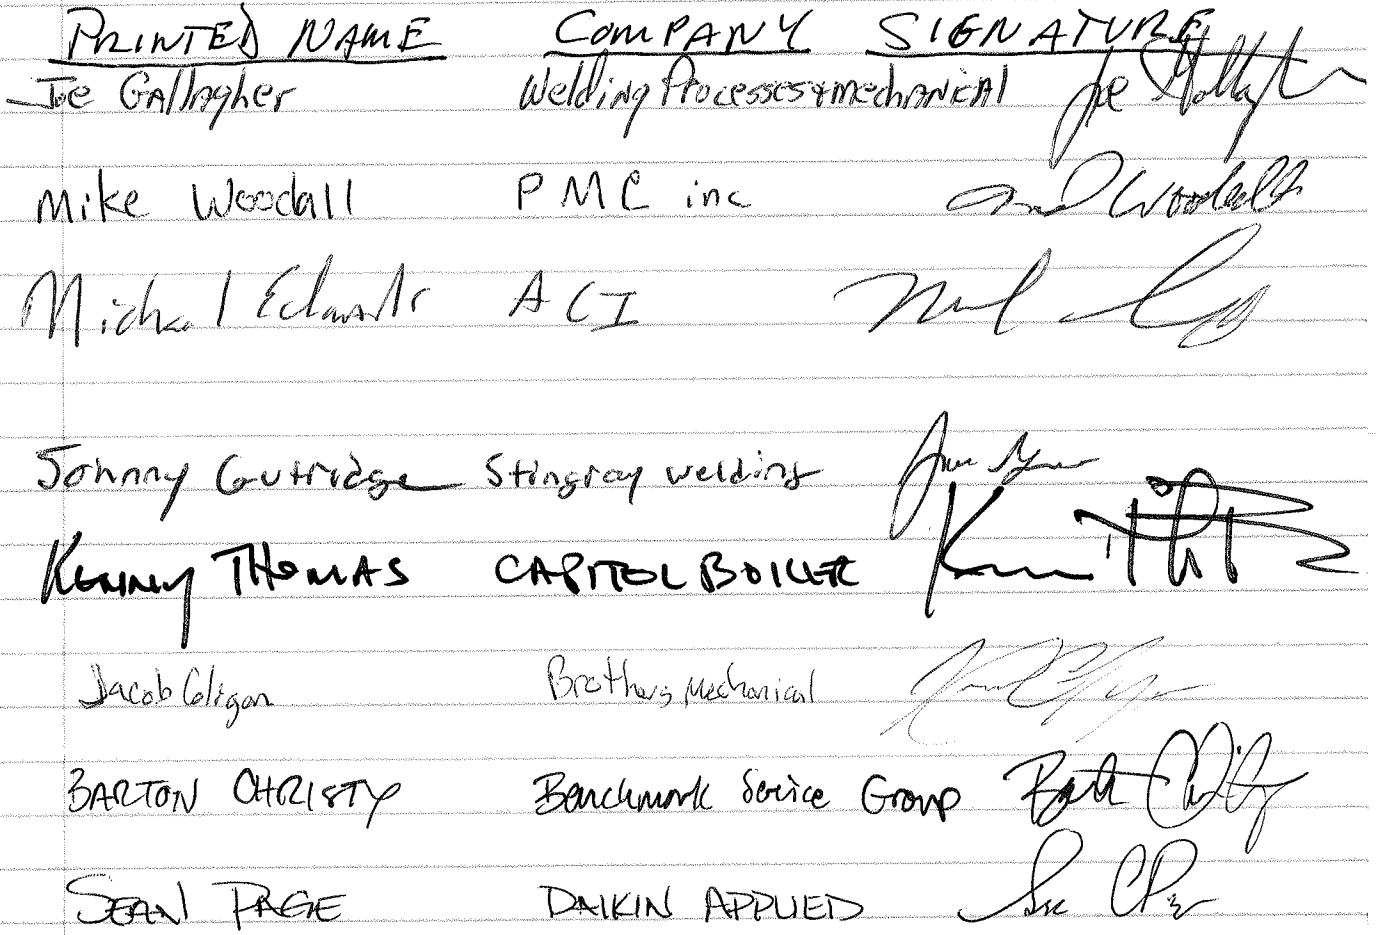 PRINTED NAME COMPANY SIGNATURE
Joe Gallagher Welding Processes & mechanical Joe Gallagher
Mike Woodall PMC inc Woodall
Michael Edwards ACI
Johnny Gutridge Stingray welding
Kenny THOMAS CAPITOL BOILER
Jacob Coligan Brothers Mechanical
BARTON CHRISTY Benchmark Service Group
SEAN PAGE DAIKIN APPLIED